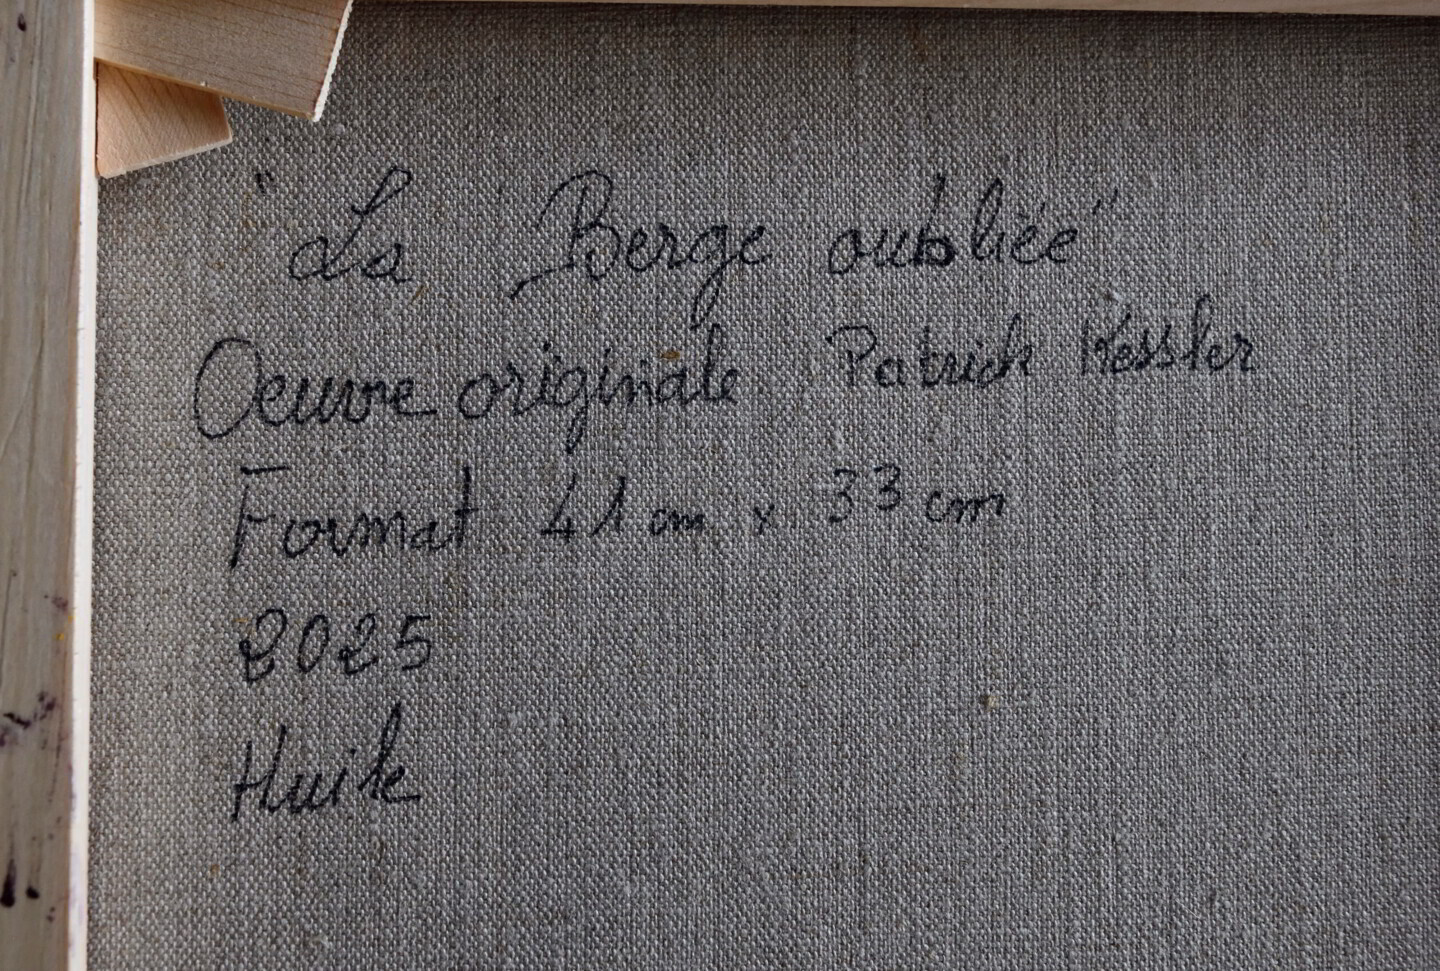 "La Berge oubliée"
Oeuvre originale Patrick Kessler
Format 41 cm x 33 cm
2025
Huile